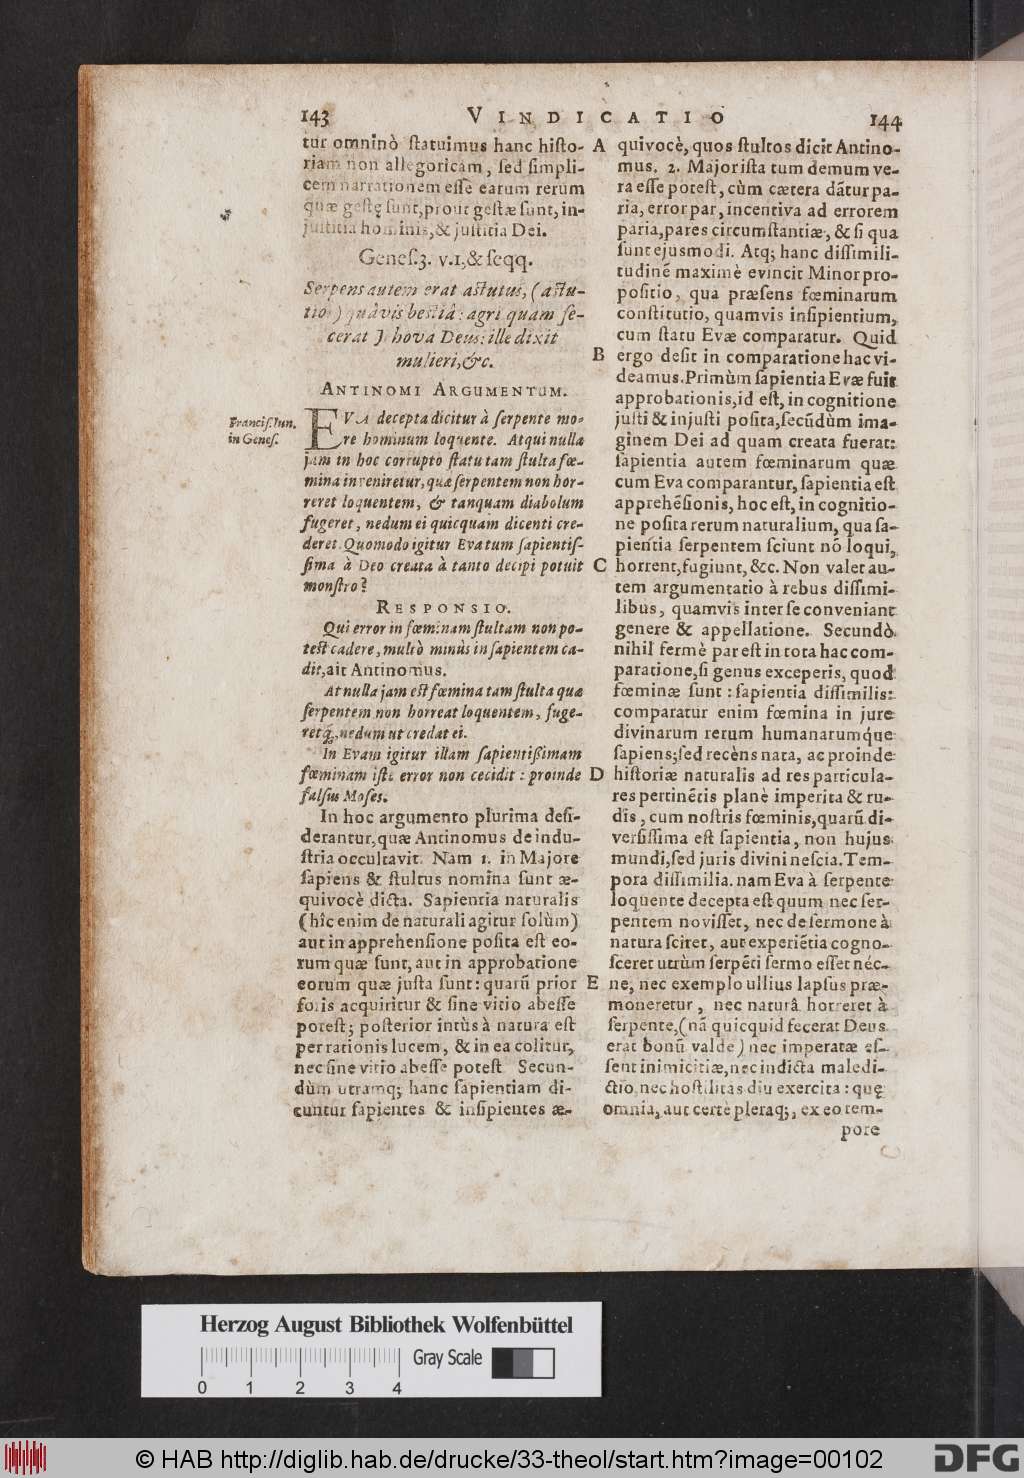 143 VINDICATIO 144
tur omninò ſtatuimus hanc hiſto-
riam non allegoricam, ſed ſimpli-
cem narrationem eſſe earum rerum
quæ geſtę ſunt, prout geſtæ ſunt, in-
juſtitia hominis, & juſtitia Dei.
Geneſ.3. v.1,& ſeqq.
Serpens autem erat aſtutus, (aſtu-
tior) quâvis beſtiâ agri quam fe-
cerat Jehova Deus: ille dixit
mulieri, &c.
ANTINOMI ARGUMENTUM.
Franciſ. Iun.
in Geneſ.
EVA decepta dicitur à ſerpente mo-
re hominum loquente. Atqui nulla
jam in hoc corrupto ſtatu tam ſtulta fœ-
mina inveniretur, quæ ſerpentem non hor-
reret loquentem, & tanquam diabolum
fugeret, nedum ei quicquam dicenti cre-
deret. Quomodo igitur Eva tum ſapientiſ-
ſima à Deo creata à tanto decipi potuit
monſtro?
RESPONSIO.
Qui error in fœminam ſtultam non po-
teſt cadere, multò minùs in ſapientem ca-
dit, ait Antinomus.
At nulla jam eſt fœmina tam ſtulta quæ
ſerpentem non horreat loquentem, fuge-
retq́;, nedum ut credat ei.
In Evam igitur illam ſapientißimam
fœminam iſte error non cecidit: proinde
falſus Moſes.
In hoc argumento plurima deſi-
derantur, quæ Antinomus de indu-
ſtria occultavit. Nam 1. in Majore
ſapiens & ſtultus nomina ſunt æ-
quivocè dicta. Sapientia naturalis
(hîc enim de naturali agitur ſolùm)
aut in apprehenſione poſita eſt eo-
rum quæ ſunt, aut in approbatione
eorum quæ juſta ſunt: quarũ prior
foris acquiritur & ſine vitio abeſſe
poteſt; poſterior intùs à natura eſt
per rationis lucem, & in ea colitur,
nec ſine vitio abeſſe poteſt. Secun-
dùm utramq; hanc ſapientiam di-
cuntur ſapientes & inſipientes æ-
A
B
C
D
E
quivocè, quos ſtultos dicit Antino-
mus. 2. Majoriſta tum demum ve-
ra eſſe poteſt, cùm cætera dãtur pa-
ria, error par, incentiva ad errorem
paria, pares circumſtantiæ, & ſi qua
ſunt ejuſmodi. Atq; hanc diſſimili-
tudinẽ maximè evincit Minor pro-
poſitio, qua præſens fœminarum
conſtitutio, quamvis inſipientium,
cum ſtatu Evæ comparatur. Quid
ergo deſit in comparatione hac vi-
deamus. Primùm ſapientia Evæ fuit
approbationis, id eſt, in cognitione
juſti & injuſti poſita, ſecũdùm ima-
ginem Dei ad quam creata fuerat:
ſapientia autem fœminarum quæ
cum Eva comparantur, ſapientia eſt
apprehẽſionis, hoc eſt, in cognitio-
ne poſita rerum naturalium, qua ſa-
pientia ſerpentem ſciunt nõ loqui,
horrent, fugiunt, &c. Non valet au-
tem argumentatio à rebus diſſimi-
libus, quamvis inter ſe conveniant
genere & appellatione. Secundò
nihil fermè par eſt in tota hac com-
paratione, ſi genus exceperis, quod
fœminæ ſunt: ſapientia diſſimilis:
comparatur enim fœmina in jure
divinarum rerum humanarumque
ſapiens; ſed recèns nata, ac proinde
hiſtoriæ naturalis ad res particula-
res pertinẽtis planè imperita & ru-
dis, cum noſtris fœminis, quarũ di-
verſiſſima eſt ſapientia, non hujus
mundi, ſed juris divini neſcia. Tem-
pora diſſimilia. nam Eva à ſerpente
loquente decepta eſt quum nec ſer-
pentem noviſſet, nec de ſermone à
natura ſciret, aut experiẽtia cogno-
ſceret utrùm ſerpẽti ſermo eſſet néc-
ne, nec exemplo ullius lapſus præ-
moneretur, nec naturâ horreret à
ſerpente, (nã quicquid fecerat Deus
erat bonũ valde) nec imperatæ eſ-
ſent inimicitiæ, nec indicta maledi-
ctio, nec hoſtilitas diu exercita: quę
omnia, aut certè pleraq;, ex eo tem-
pore
Herzog August Bibliothek Wolfenbüttel
0 1 2 3 4 Gray Scale
© HAB http://diglib.hab.de/drucke/33-theol/start.htm?image=00102
DFG